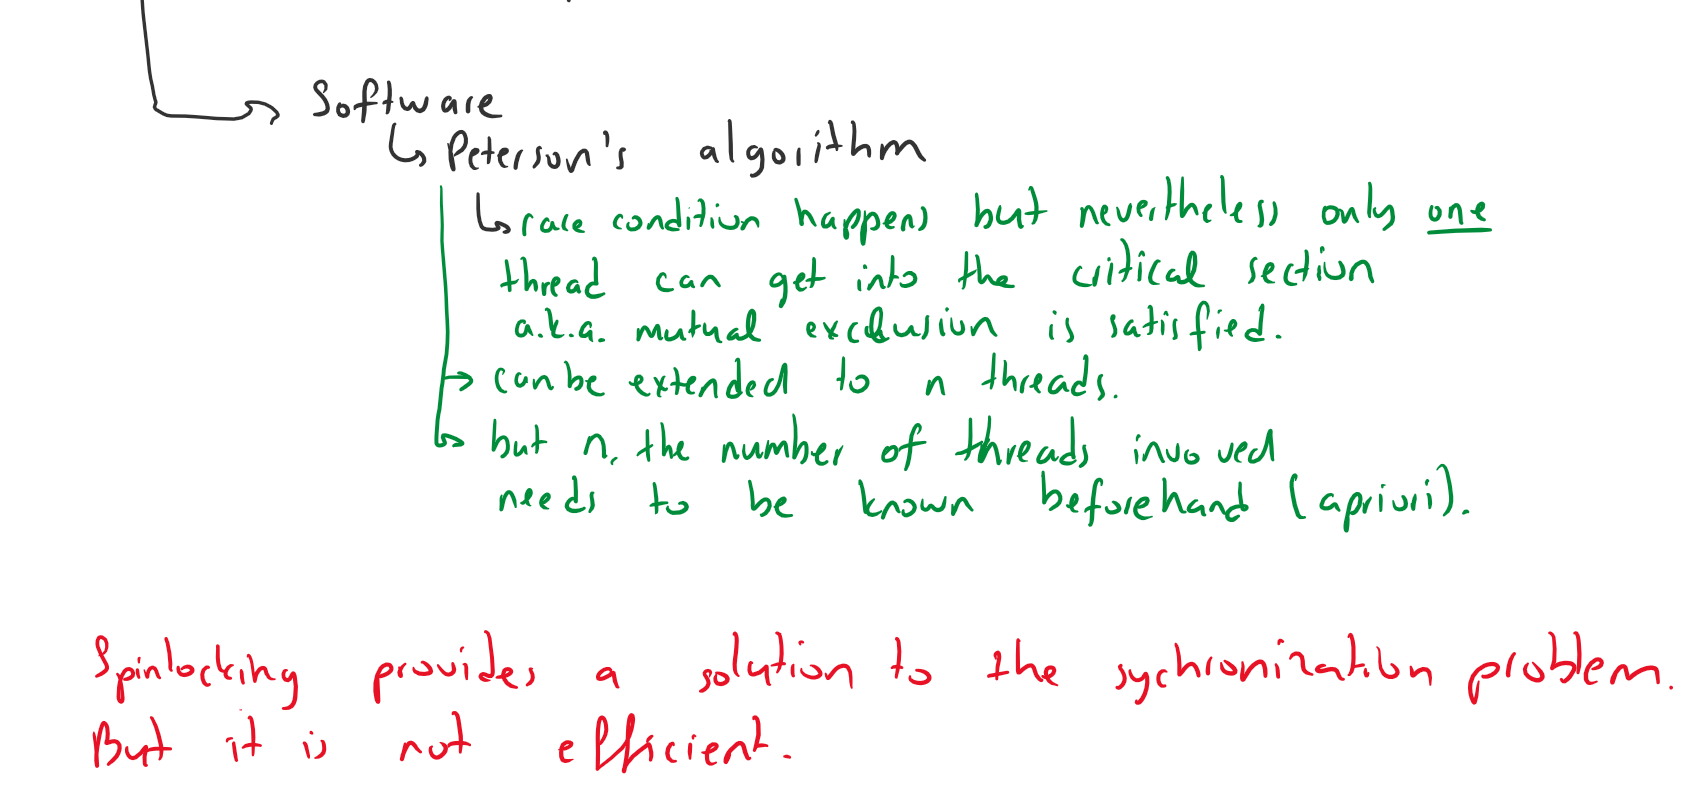 Software
Peterson's algorithm
race condition happens but nevertheless only one
thread can get into the critical section
a.k.a. mutual exclusion is satisfied.
can be extended to n threads.
but n, the number of threads invoved
needs to be known beforehand (apriori).
Spinlocking provides a solution to the sychronization problem.
But it is not efficient.